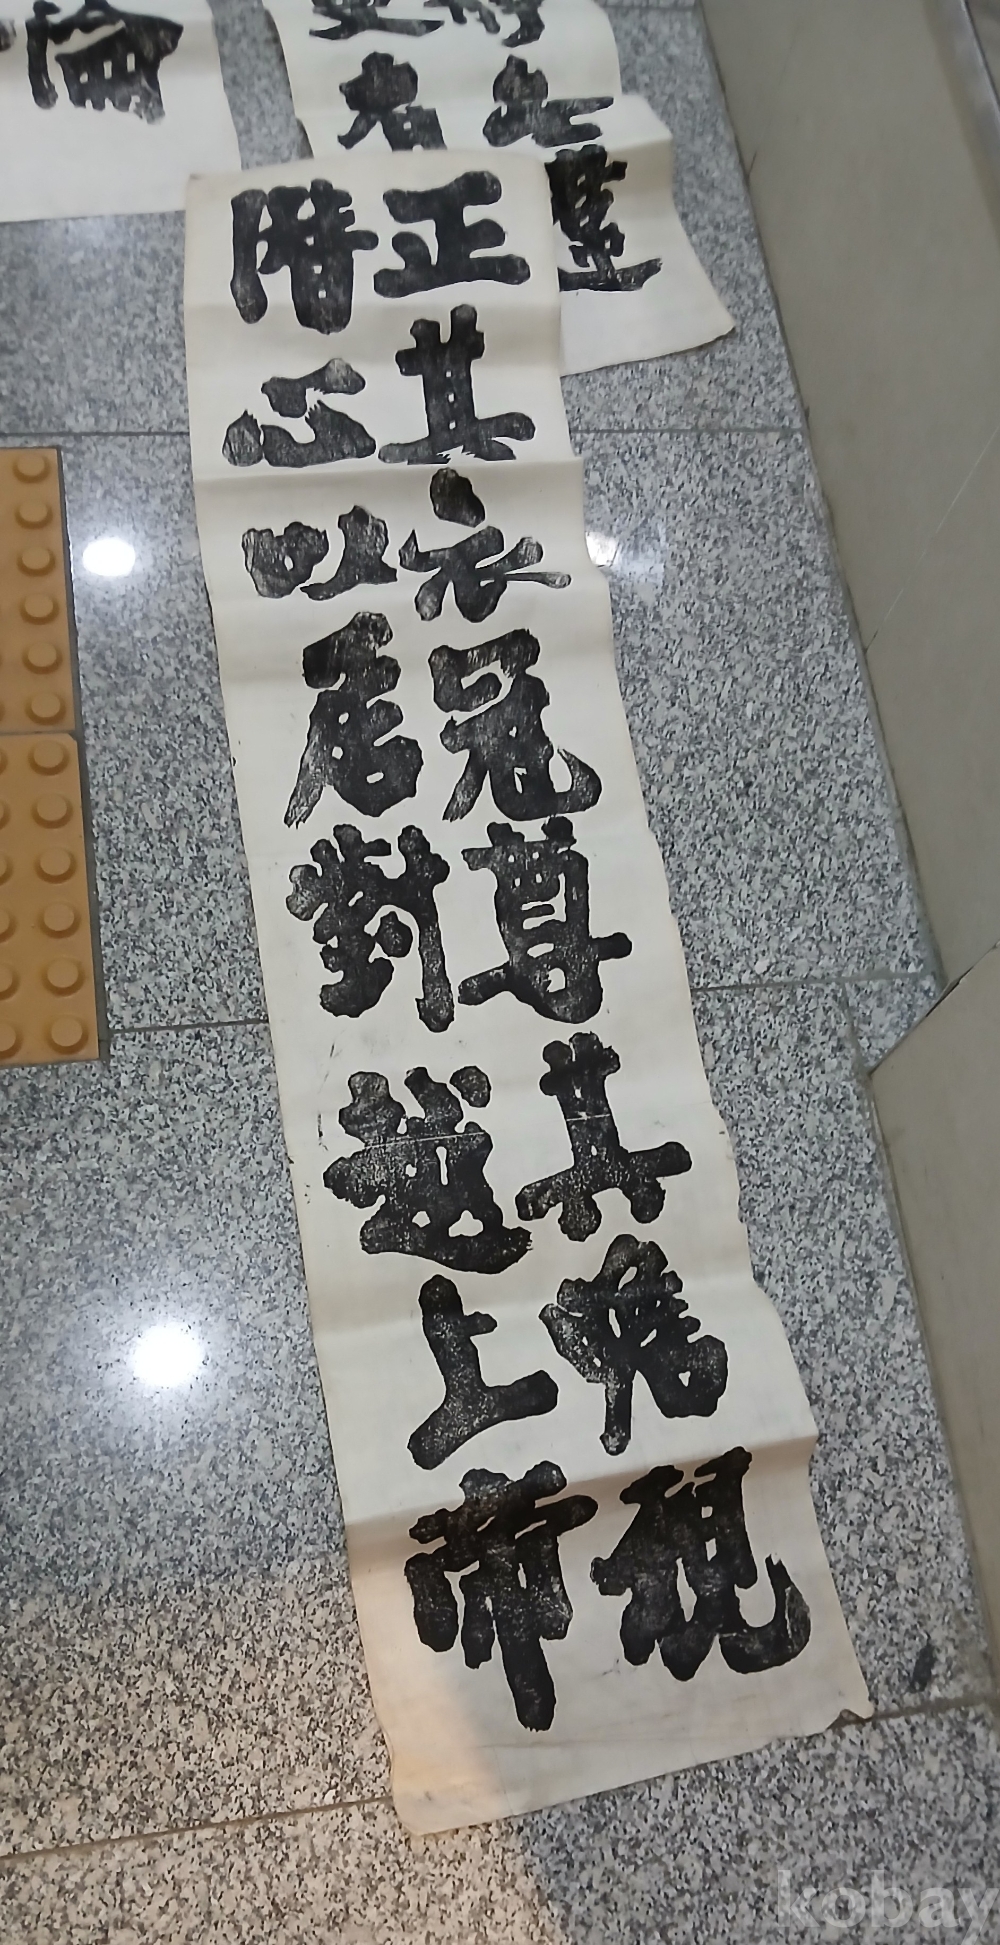 倫
之
者
正其衣冠尊其瞻視
潛心以居對越上帝
kobay